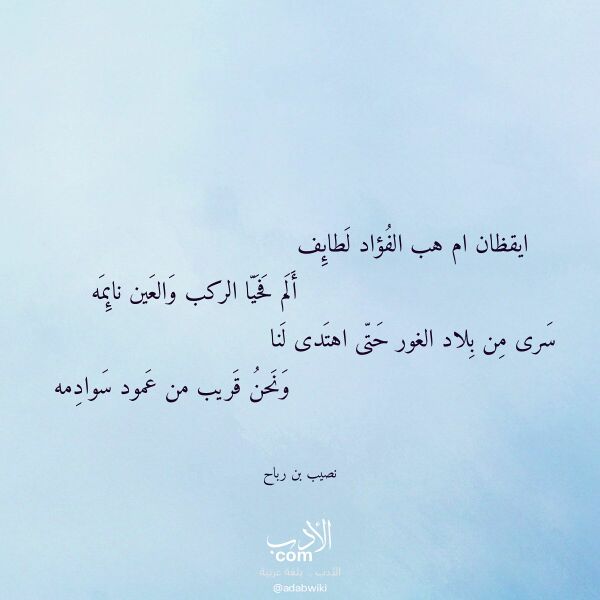 ايقظان ام هب الفُؤاد لَطائِف
أَلَم فَحَيّا الركب وَالعَين نائِمَه
سَرى مِن بِلاد الغور حَتّى اهتَدى لَنا
وَنَحنُ قَريب من عَمود سَوادِمه
نصيب بن رباح
الأدب
com
الأدب .. بلغة عربية
@adabwiki